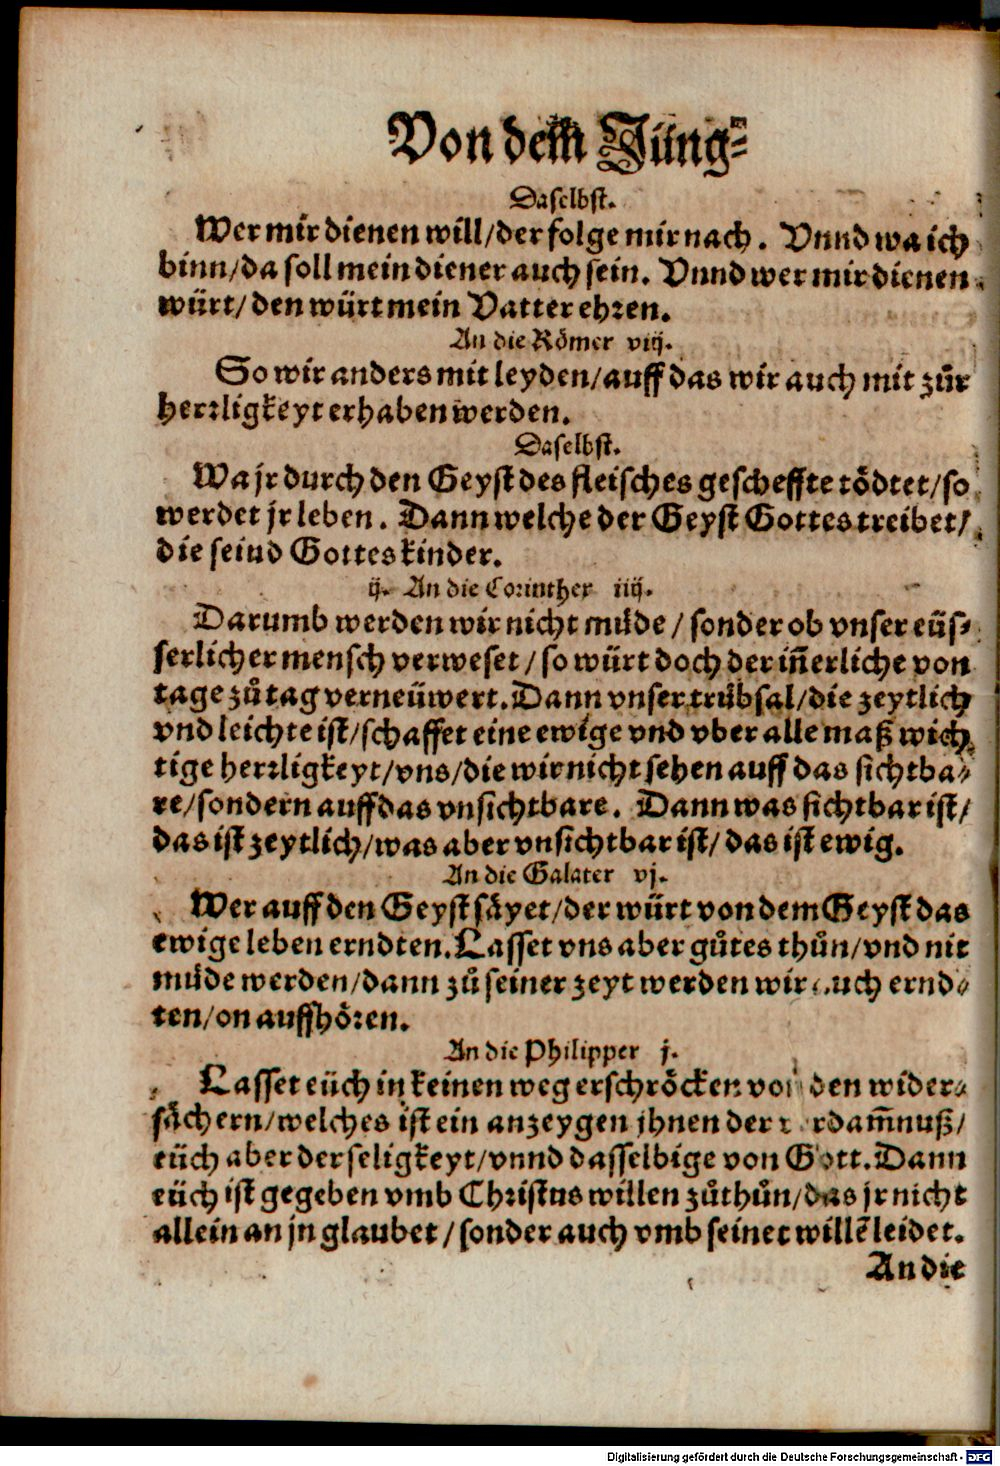 Von dem Jüng⸗
Daselbst.
Wer mir dienen will/der folge mir nach. Vnnd wa ich
binn/da soll mein diener auch sein. Vnnd wer mir dienen
würt/den würt mein Vatter ehren.
An die Römer viij.
So wir anders mit leyden/auff das wir auch mit zůr
herrligkeyt erhaben werden.
Daselbst.
Wa jr durch den Geyst des fleisches gescheffte tödtet/so
werdet jr leben. Dann welche der Geyst Gottes treibet/
die seind Gottes kinder.
ij. An die Corinther iiij.
Darumb werden wir nicht müde/sonder ob vnser eüs⸗
serlicher mensch verweset/so würt doch der iñerliche von
tage zů tag verneüwert. Dann vnser trübsal/die zeytlich
vnd leichte ist/schaffet eine ewige vnd vber alle maß wich
tige herrligkeyt/vns/die wir nicht sehen auff das sichtba⸗
re/sondern auff das vnsichtbare. Dann was sichtbar ist/
das ist zeytlich/was aber vnsichtbar ist/das ist ewig.
An die Galater vj.
Wer auff den Geyst säyet/der würt von dem Geyst das
ewige leben erndten. Lasset vns aber gůtes thůn/vnd nit
müde werden/dann zů seiner zeyt werden wir auch ernd⸗
ten/on auffhören.
An die Philipper j.
Lasset eüch in keinen weg erschröcken von den wider⸗
sächern/welches ist ein anzeygen jhnen der verdam̃nuß/
eüch aber der seligkeyt/vnnd dasselbige von Gott. Dann
eüch ist gegeben vmb Christus willen zůthůn/das jr nicht
allein an jn glaubet/sonder auch vmb seinet willẽ leidet.
An die
Digitalisierung gefördert durch die Deutsche Forschungsgemeinschaft - DFG